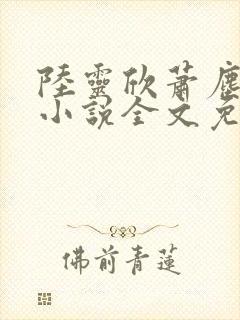 陸靈欣蕭塵
小說全文免
佛前青蓮